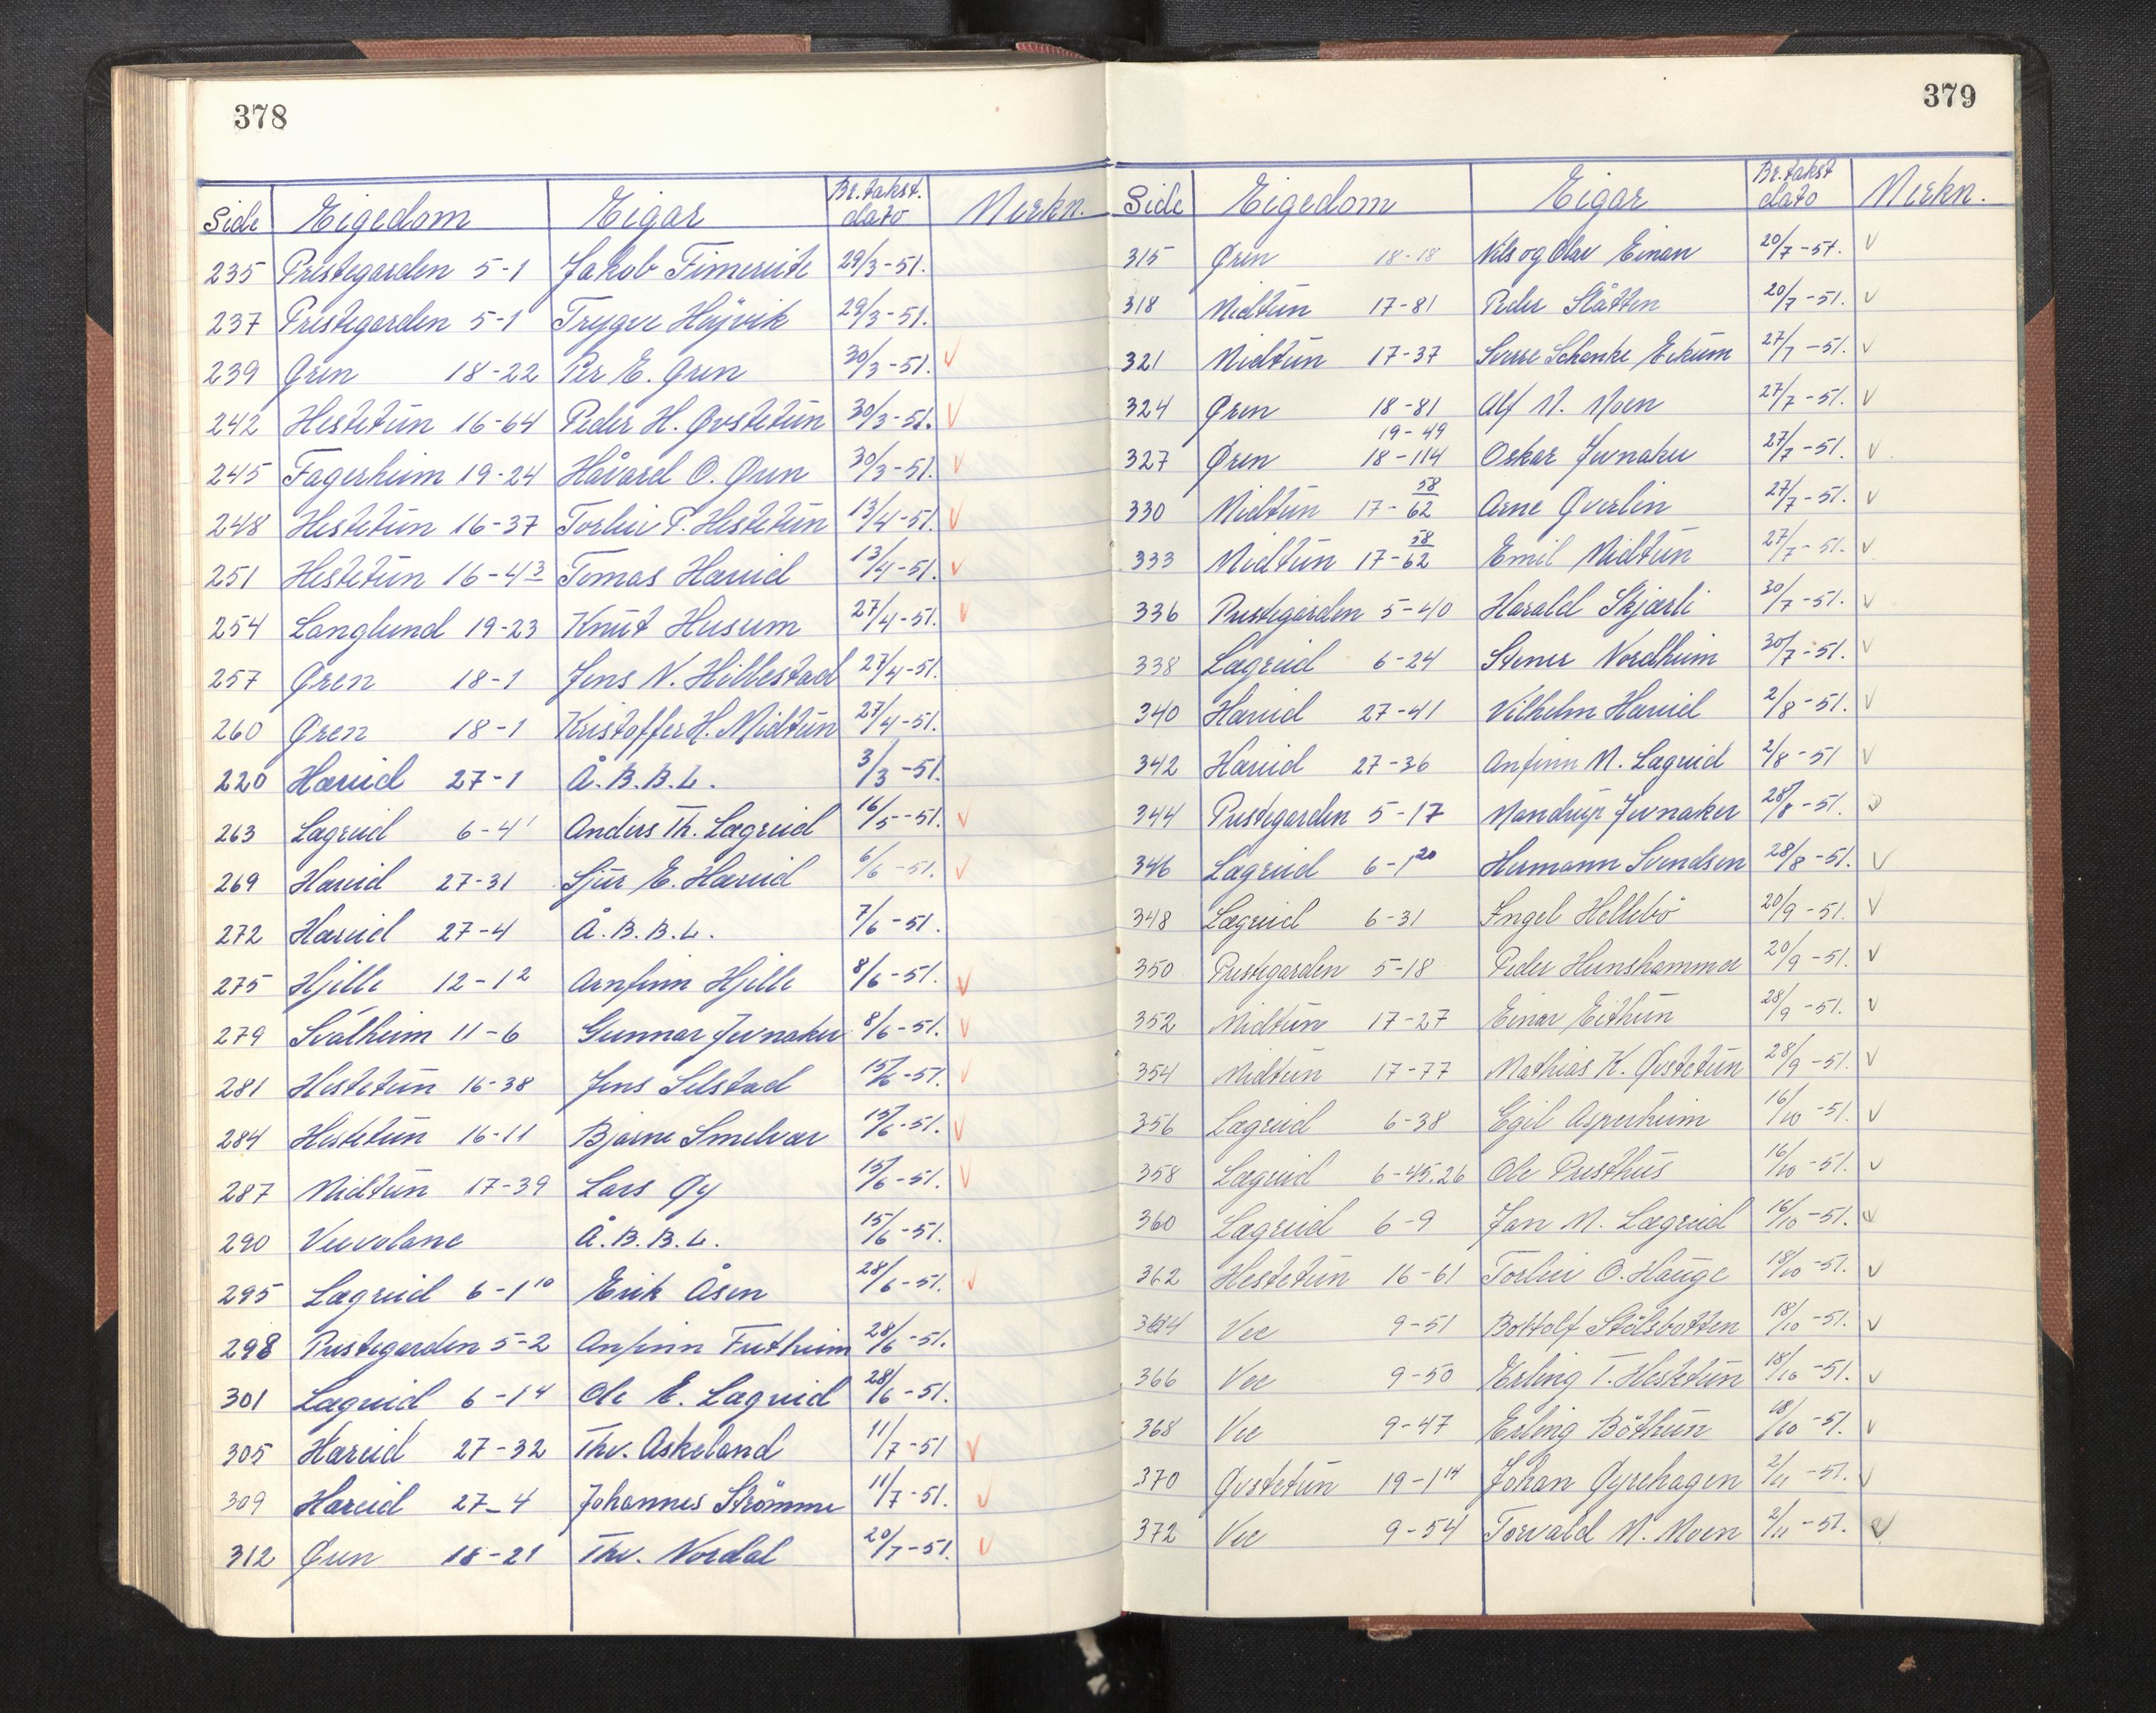 378
Side Eigedom Eigar Br.takst. dato Merkn.
235 Prestegarden 5-1 Jakob Fimreite 29/3-51.
237 Prestegarden 5-1 Trygve Höjvik 29/3-51.
239 Øren 18-22 Per E. Øren 30/3-51. √
242 Hestetun 16-64 Peder H. Øvstetun 30/3-51. √
245 Fagerheim 19-24 Håvard O. Øren 30/3-51. √
248 Hestetun 16-37 Torleiv P. Hestetun 13/4-51. √
251 Hestetun 16-43 Tomas Hareid 13/4-51. √
254 Langlund 19-23 Knut Husum 27/4-51. √
257 Øren 18-1 Jens N. Hillestad 27/4-51.
260 Øren 18-1 Kristoffer H. Midtun 27/4-51.
220 Hareid 27-1 Å.B.B.L. 3/3-51.
263 Lægreid 6-4¹ Anders Th. Lægreid 16/5-51. √
269 Hareid 27-31 Sjur E. Hareid 6/6-51. √
272 Hareid 27-4 Å.B.B.L. 7/6-51.
275 Hjelle 12-1² Arnfinn Hjelle 8/6-51. √
279 Svalheim 11-6 Gunnar Jevnaker 8/6-51. √
281 Hestetun 16-38 Jens Selstad 15/6-51. √
284 Hestetun 16-11 Bjarne Smelvær 15/6-51. √
287 Midtun 17-39 Lars Øy 15/6-51. √
290 Veevolane Å.B.B.L. 15/6-51.
295 Lægreid 6-1¹⁰ Erik Åsen 28/6-51. √
298 Prestegarden 5-2 Anfinn Fretheim 28/6-51.
301 Lægreid 6-1⁴ Ole E. Lægreid 28/6-51.
305 Hareid 27-32 Thv. Askeland 11/7-51 √
309 Hareid 27-4 Johannes Strömme 11/7-51. √
312 Øren 18-21 Thv. Nordal 20/7-51. √
379
Side Eigedom Eigar Br.takst dato Merkn.
315 Øren 18-18 Nils og Olav Einan 20/7-51. √
318 Midtun 17-81 Peder Slåtten 20/7-51. √
321 Midtun 17-37 Sverre Schanke Eikum 27/7-51. √
324 Øren 18-81 Alf N. Moen 27/7-51. √
19-49
327 Øren 18-114 Oskar Jevnaker 27/7-51. √
330 Midtun 17-58/62 Arne Qverlin 27/7-51. √
333 Midtun 17-58/62 Emil Midtun 27/7-51. √
336 Prestegarden 5-40 Harald Skjærli 30/7-51. √
338 Lægreid 6-24 Stener Nordheim 30/7-51. √
340 Hareid 27-41 Vilhelm Hareid 2/8-51. √
342 Hareid 27-36 Anfinn M. Lægreid 2/8-51 √
344 Prestegarden 5-17 Mandrup Jevnaker 28/8-51. √
346 Lægreid 6-1²⁰ Hermann Svendsen 28/8-51. √
348 Lægreid 6-31 Ingel Hellebö 20/9-51. √
350 Prestegarden 5-18 Peder Hunshammer 20/9-51. √
352 Midtun 17-27 Einar Eithun 28/9-51. √
354 Midtun 17-77 Mathias K. Øvstetun 28/9-51. √
356 Lægreid 6-38 Egil Asperheim 16/10-51. √
358 Lægreid 6-45.26 Ole Presthus 16/10-51. √
360 Lægreid 6-9 Jan M. Lægreid 16/10-51. √
362 Hestetun 16-61 Torleiv O. Hauge 18/10-51. √
364 Vee 9-51 Bottolf Stölsbotten 18/10-51. √
366 Vee 9-50 Erling T. Hestetun 18/10-51. √
368 Vee 9-47 Erling Böthun 18/10-51. √
370 Øvstetun 19-1¹⁴ Johan Øyrehagen 2/11-51. √
372 Vee 9-54 Torvald M. Moen 2/11-51. √